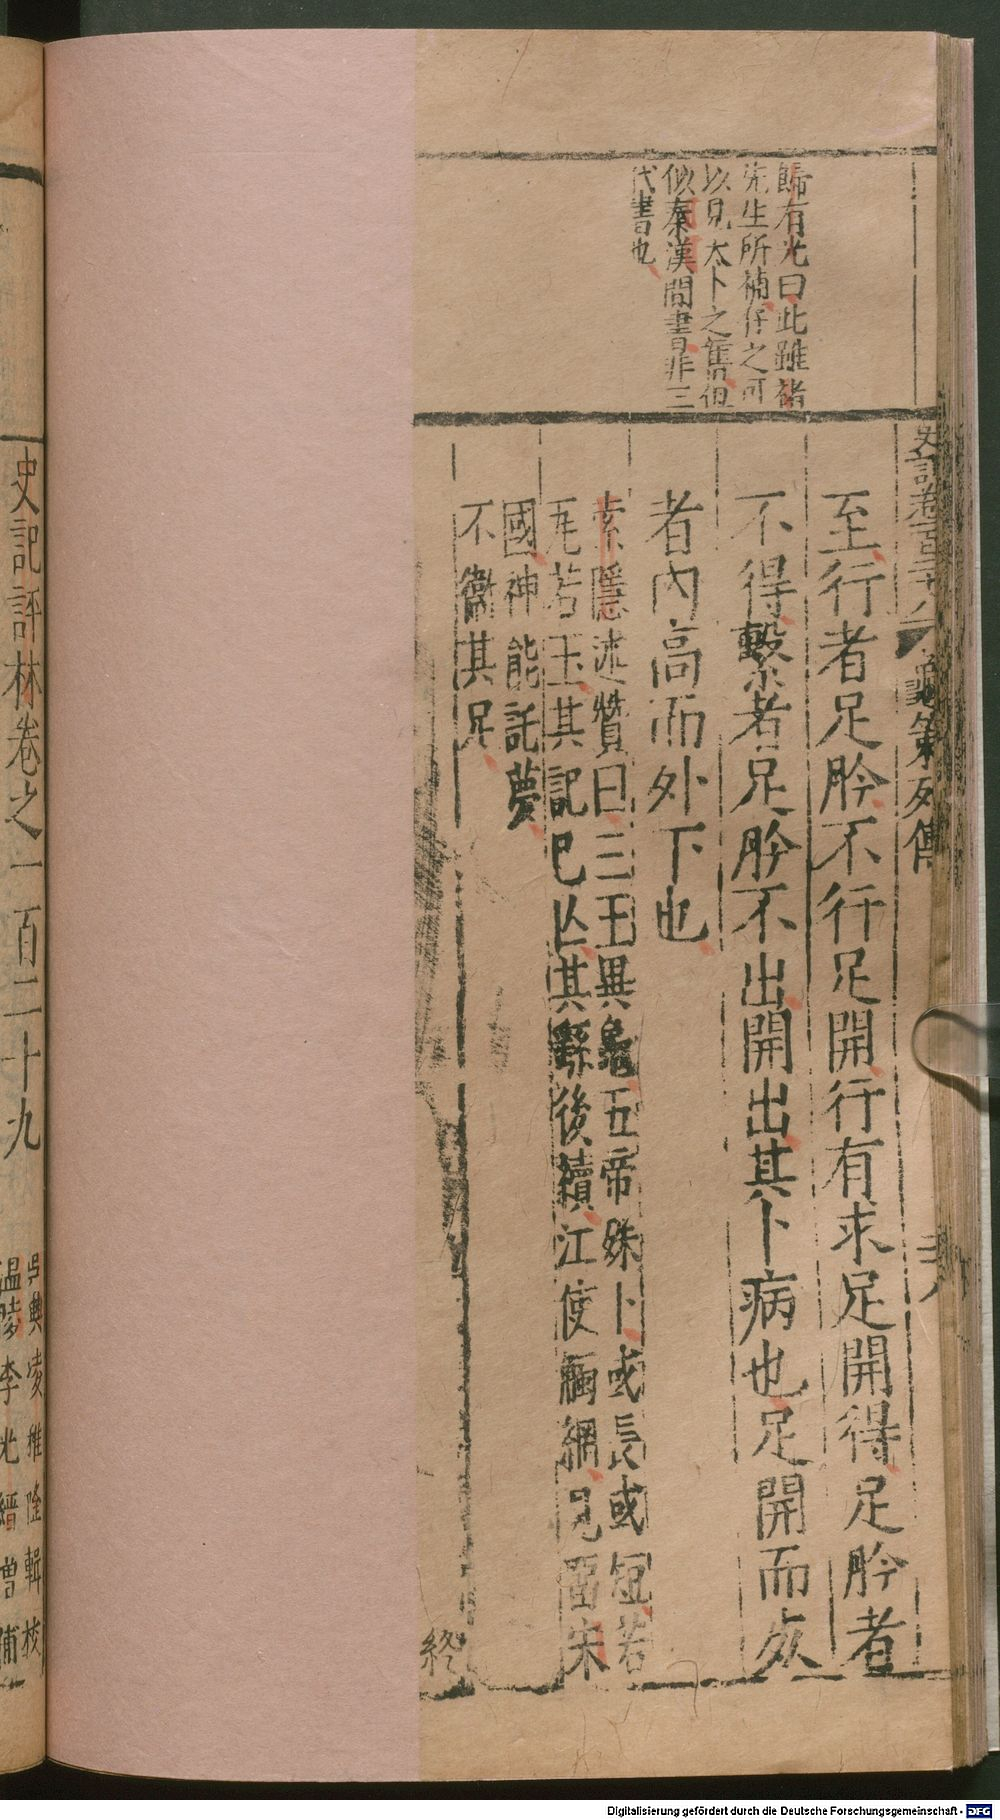 史記卷百二十八
龜策列傳
歸有光曰此雖褚
先生所補仔之可
以見太卜之舊但
似秦漢間書非三
代書也
至行者足肣不行足開行有求足開得足肣者
不得繫者足肣不出開出其卜病也足開而死
者內高而外下也
索隱述贊曰三王異龜五帝殊卜或長或短若
瓦若玉其記已亡其繇後續江使觸網見留宋
國神能託夢
不衞其足
終
史記評林卷之一百二十九
吳興凌稚隆輯校
溫陵李光縉增補
Digitalisierung gefördert durch die Deutsche Forschungsgemeinschaft - DFG